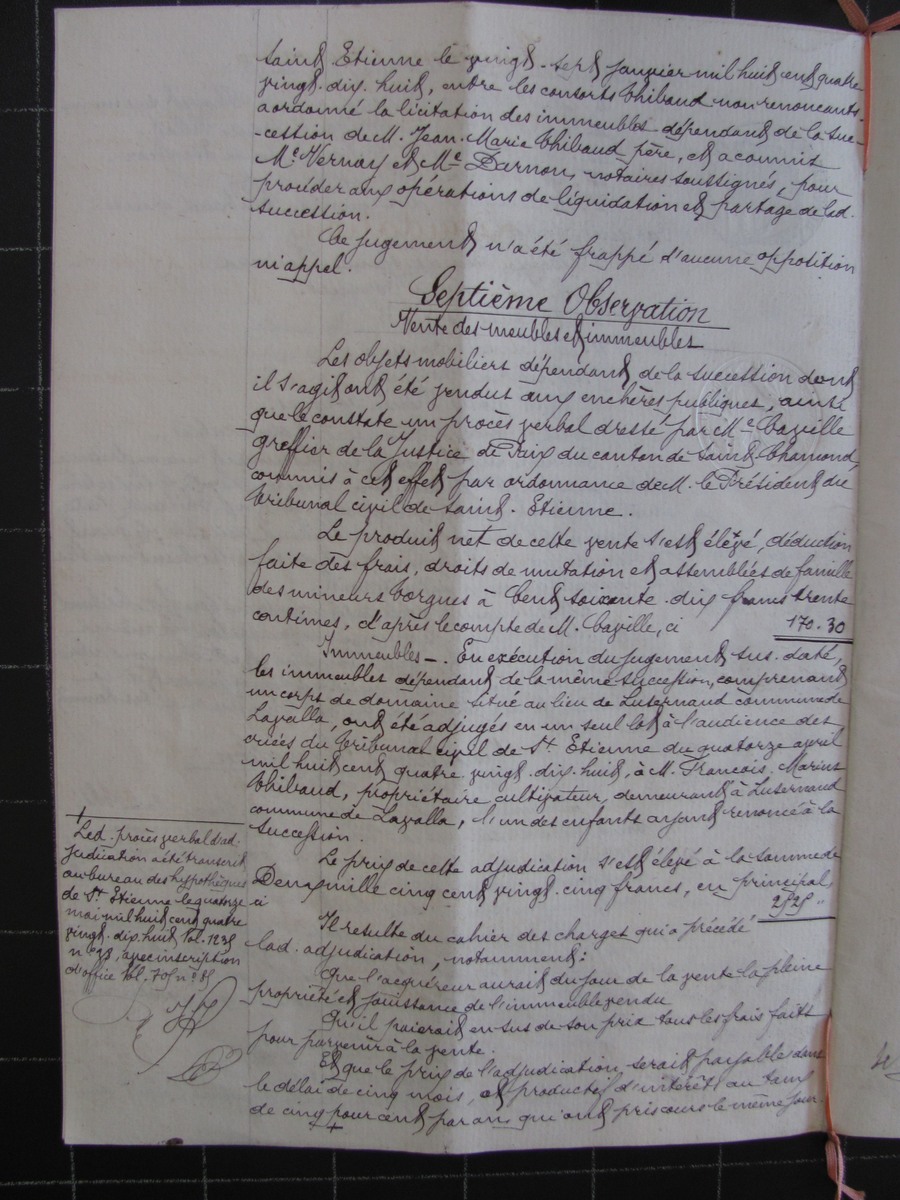 Saint Etienne le vingt-sept janvier mil huit cent quatre
vingt-dix-huit, entre les consorts Thibaud non renonçants
a ordonné la licitation des immeubles dépendant de la suc-
-cession de M. Jean-Marie Thibaud père, et a commis
Me Vernay et Me Darnon, notaires soussignés, pour
procéder aux opérations de liquidation et partage de lad.
succession.
Ce jugement n'a été frappé d'aucune opposition
ni appel.
Septième Observation
Vente des meubles et immeubles
Les objets mobiliers dépendant de la succession dont
il s'agit ont été vendus aux enchères publiques, ainsi
que le constate un procès verbal dressé par Me Caville
greffier de la Justice de Paix du canton de Saint-Chamond,
commis à cet effet par ordonnance de M. le Président du
Tribunal civil de Saint-Etienne.
Le produit net de cette vente s'est élevé, déduction
faite des frais, droits de mutation et assemblées de famille
des mineurs Corgues à Cent soixante-dix francs trente
centimes, d'après le compte de M. Caville, ci 170.30
Immeubles -. En exécution du jugement sus-daté,
les immeubles dépendant de la même succession, comprenant
un corps de domaine situé au lieu de Lusernaud commune de
Lavalla, ont été adjugés en un seul lot à l'audience des
criées du Tribunal civil de St Etienne du quatorze avril
mil huit cent quatre-vingt-dix-huit, à M. François-Marius
Thibaud, propriétaire cultivateur, demeurant à Lusernaud
commune de Lavalla, l'un des enfants ayant renoncé à la
succession.
Le prix de cette adjudication s'est élevé à la somme de
Deux mille cinq cent vingt-cinq francs, en principal,
ci 2525 "
Il resulte du cahier des charges qui a précédé
lad. adjudication, notamment:
Que l'acquéreur aurait du jour de la vente la pleine
propriété et jouissance de l'immeuble vendu
Qu'il paierait en sus de son prix tous les frais faits
pour parvenir à la vente.
Et que le prix de l'adjudication serait payable dans
le délai de cinq mois, et productif d'intérêt au taux
de cinq pour cent par an qui ont pris cours le même jour.
+
+
Led. procès verbal d'ad-
judication a été transcrit
au bureau des hypothèques
de St Etienne le quatorze
mai mil huit cent quatre
vingt-dix-huit Vol. 1235
n° 28, avec inscription
d'office vol. 705 n° 85